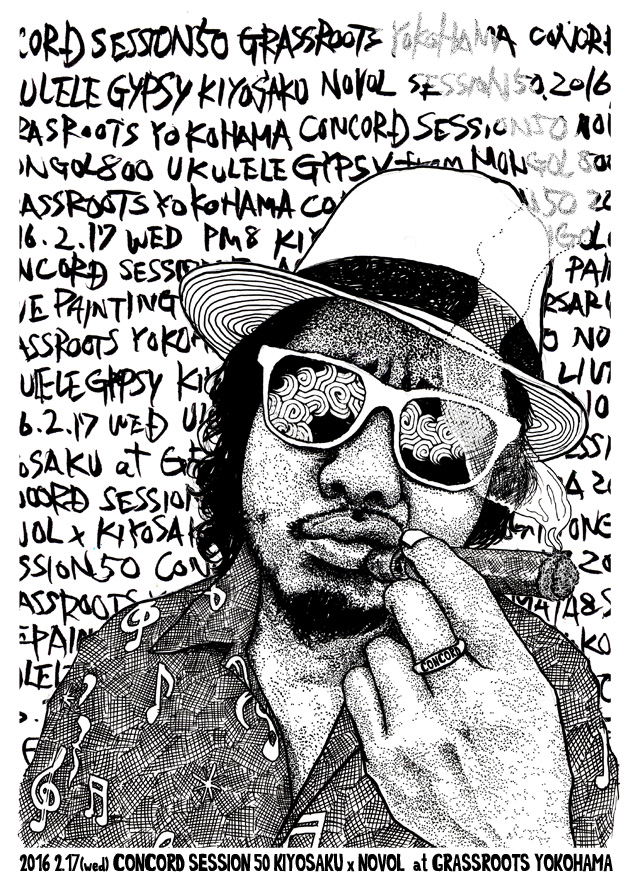 CORD SESSION50 GRASSROOTS YOKOHAMA CONCORD
UKULELE GYPSY KIYOSAKU NOVOL SESSION50.2016
GRASROOTS YOKOHAMA CONCORD SESSION50 NOV
ONGOL800 UKULELE GYPSY from MONGOL 800
ASSROOTS YOKOHAMA CO N50 20
16.2.17 WED PM8 KIY NGOL
NCORD SESSI PAIN
VE PAINTING RSARY
ASSROOTS YOKOH O NO
ULELE GYPSY KIY LIV
6.2.17 WED UK NO
OSAKU at GR SSI
CORD SESSION A 20
VOL x KIYOSAK ONG
SSION50 CON 20
ASSROOTS
EPAIN KO
LELE
CONCORD
2016 2.17(wed) CONCORD SESSION 50 KIYOSAKU x NOVOL at GRASSROOTS YOKOHAMA